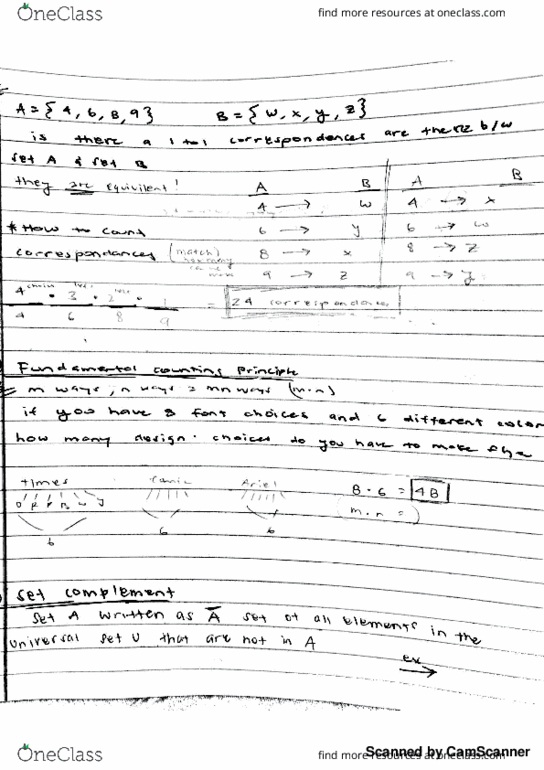 OneClass find more resources at oneclass.com
A = {4, 6, 8, 9} B = {w, x, y, z}
is there a 1 to 1 correspondences are there b/w
set A & set B
they are equivalent! A B A B
4 → w 4 → x
* How to count 6 → y 6 → w
correspondances (match) 8 → x 8 → z
how many
9 → z 9 → y
4 · 3 · 2 · 1 = 24 correspondances
4 6 8 9
Fundamental counting principle
= m ways, n ways = mn ways (m·n)
if you have 8 font choices and 6 different color
how many design choices do you have to make the
times Ariel
8 · 6 = 48
(m·n = )
6 6 6
Set complement
Set A written as A̅ set of all elements in the
universal set U that are not in A
ex →
OneClass find more resources at oneclass.com
Scanned by CamScanner